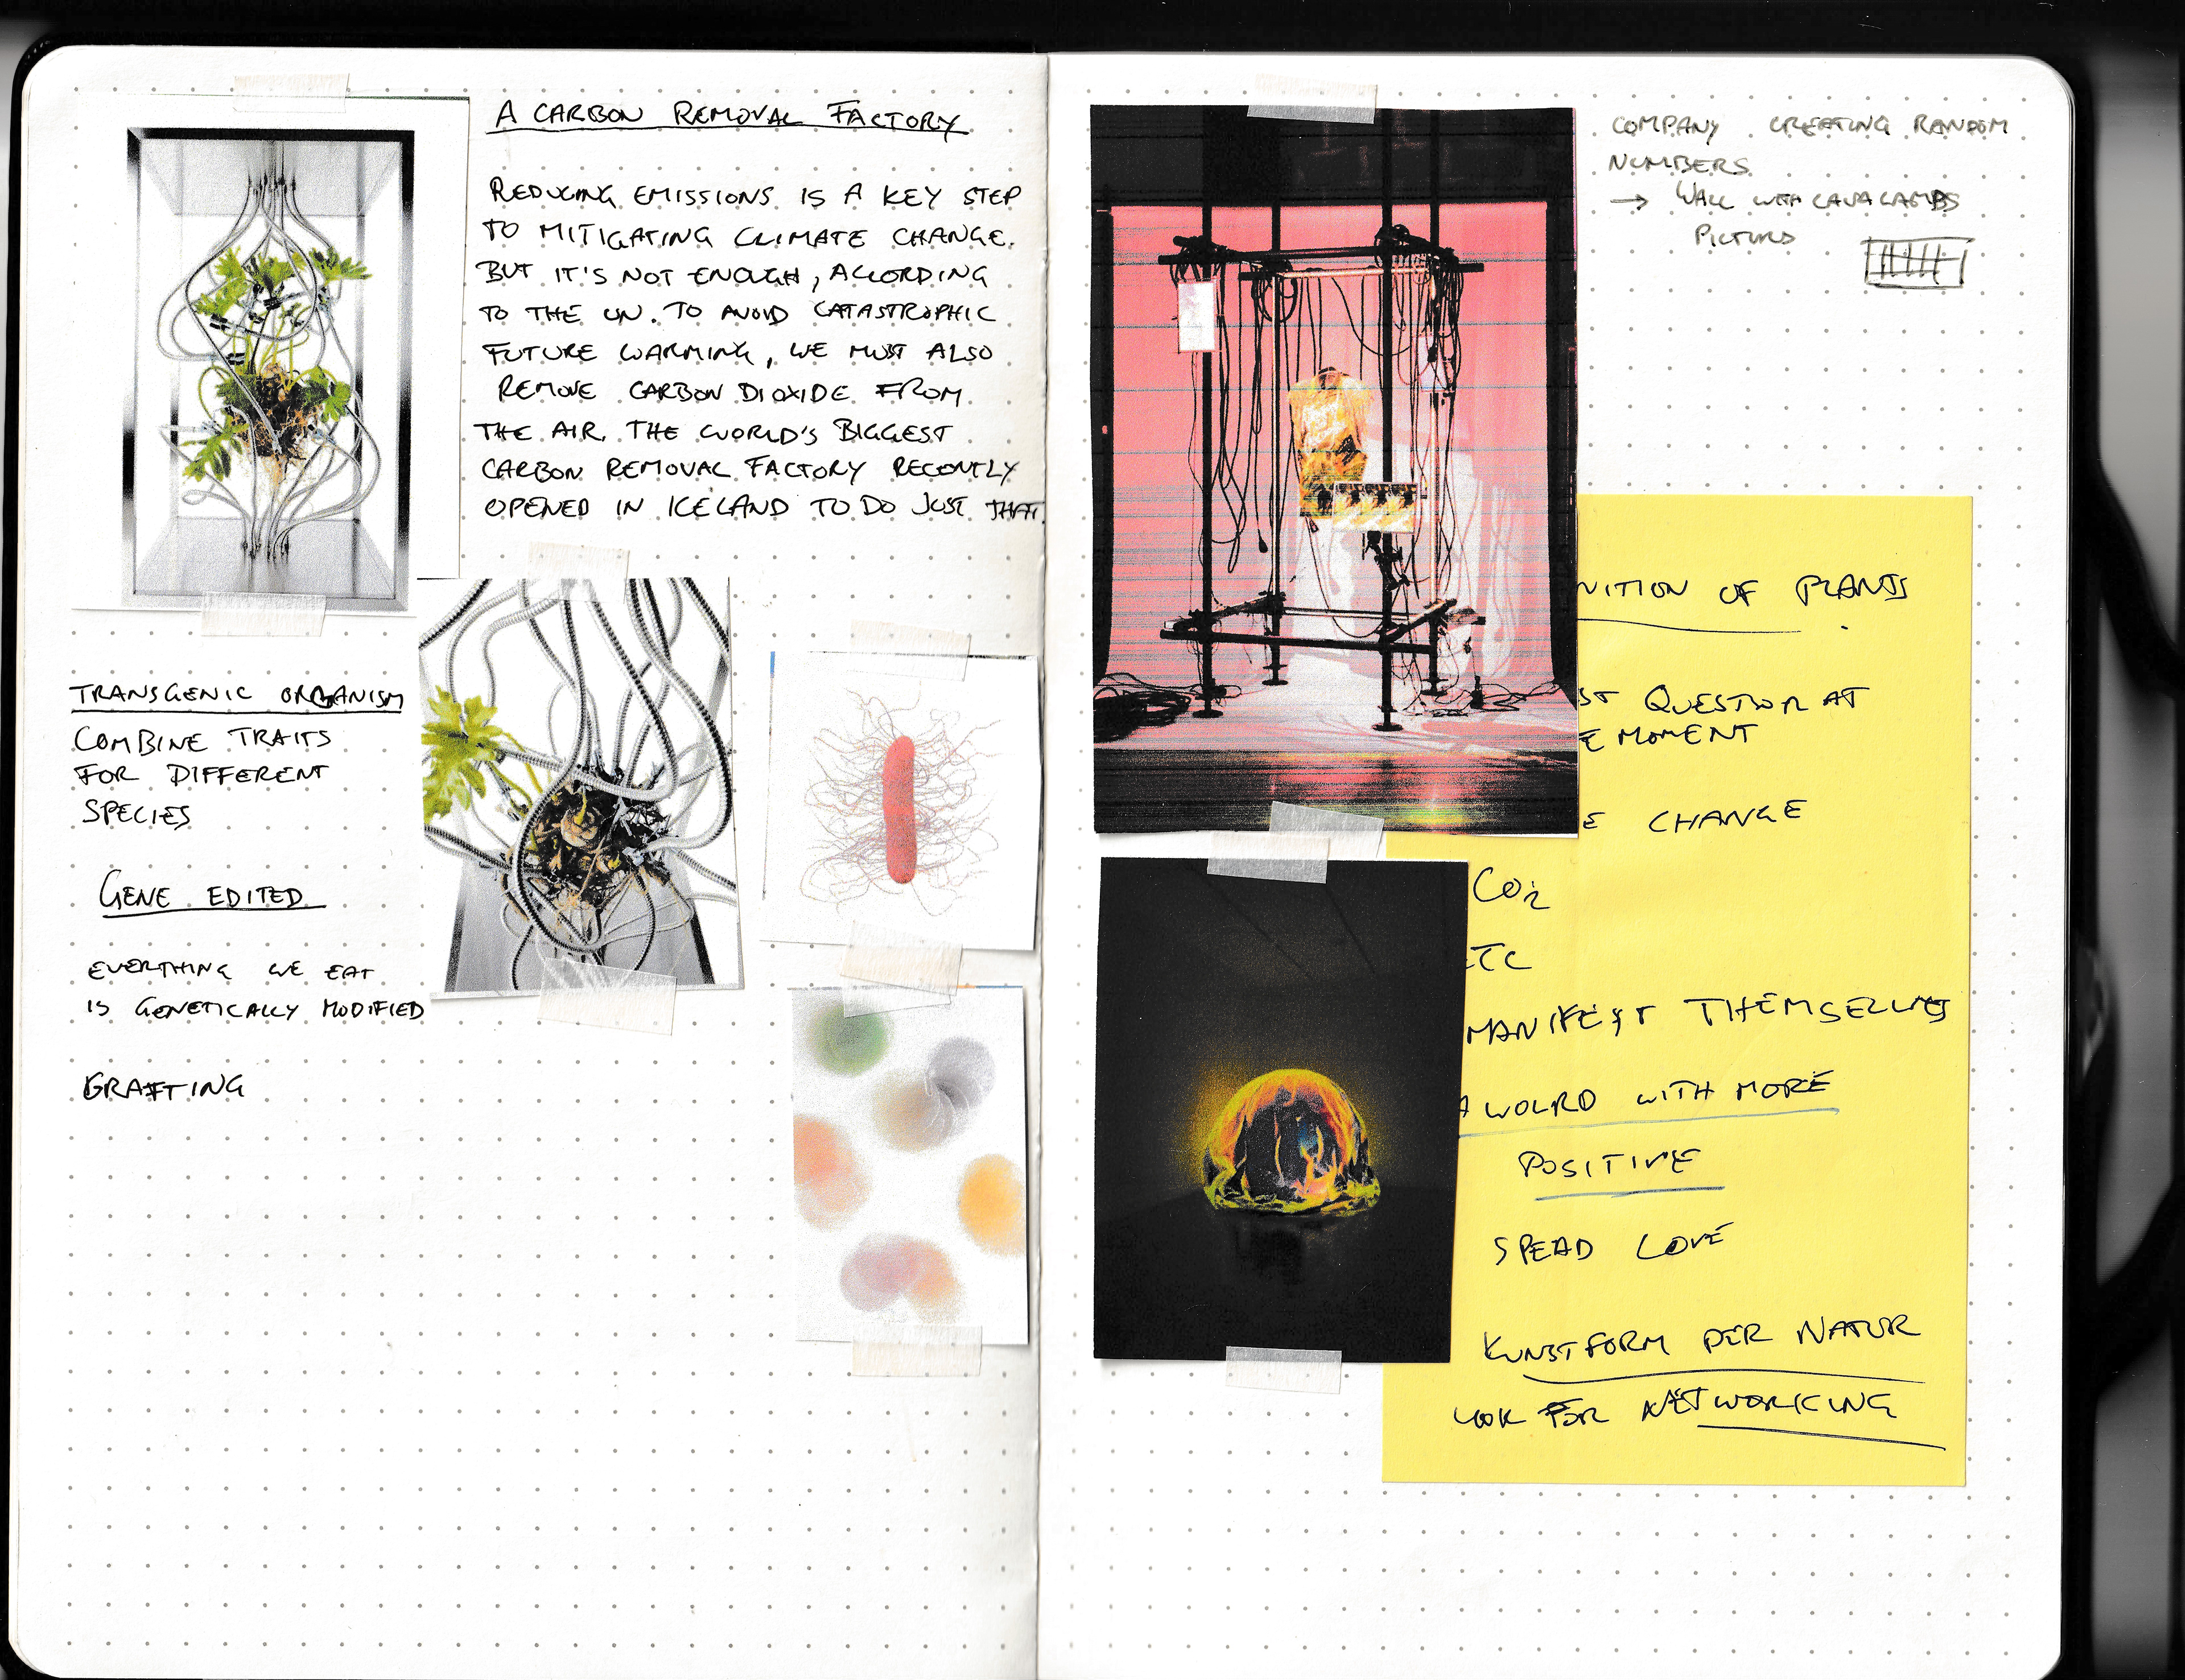 A CARBON REMOVAL FACTORY
REDUCING EMISSIONS IS A KEY STEP
TO MITIGATING CLIMATE CHANGE.
BUT IT'S NOT ENOUGH, ACCORDING
TO THE UN. TO AVOID CATASTROPHIC
FUTURE WARMING, WE MUST ALSO
REMOVE CARBON DIOXIDE FROM
THE AIR. THE WORLD'S BIGGEST
CARBON REMOVAL FACTORY RECENTLY
OPENED IN ICELAND TO DO JUST THAT.
TRANSGENIC ORGANISM
COMBINE TRAITS
FOR DIFFERENT
SPECIES
GENE EDITED
EVERYTHING WE EAT
IS GENETICALLY MODIFIED
GRAFTING
COMPANY CREATING RANDOM
NUMBERS
→ WALL WITH LAVA LAMPS
PICTURES
NITION OF PLANTS
ST QUESTION AT
E MOMENT
E CHANGE
CO2
ETC
MANIFEST THEMSELVES
A WOLRD WITH MORE
POSITIVE
SPEAD LOVE
KUNSTFORM DER NATUR
LOOK FOR NETWORKING